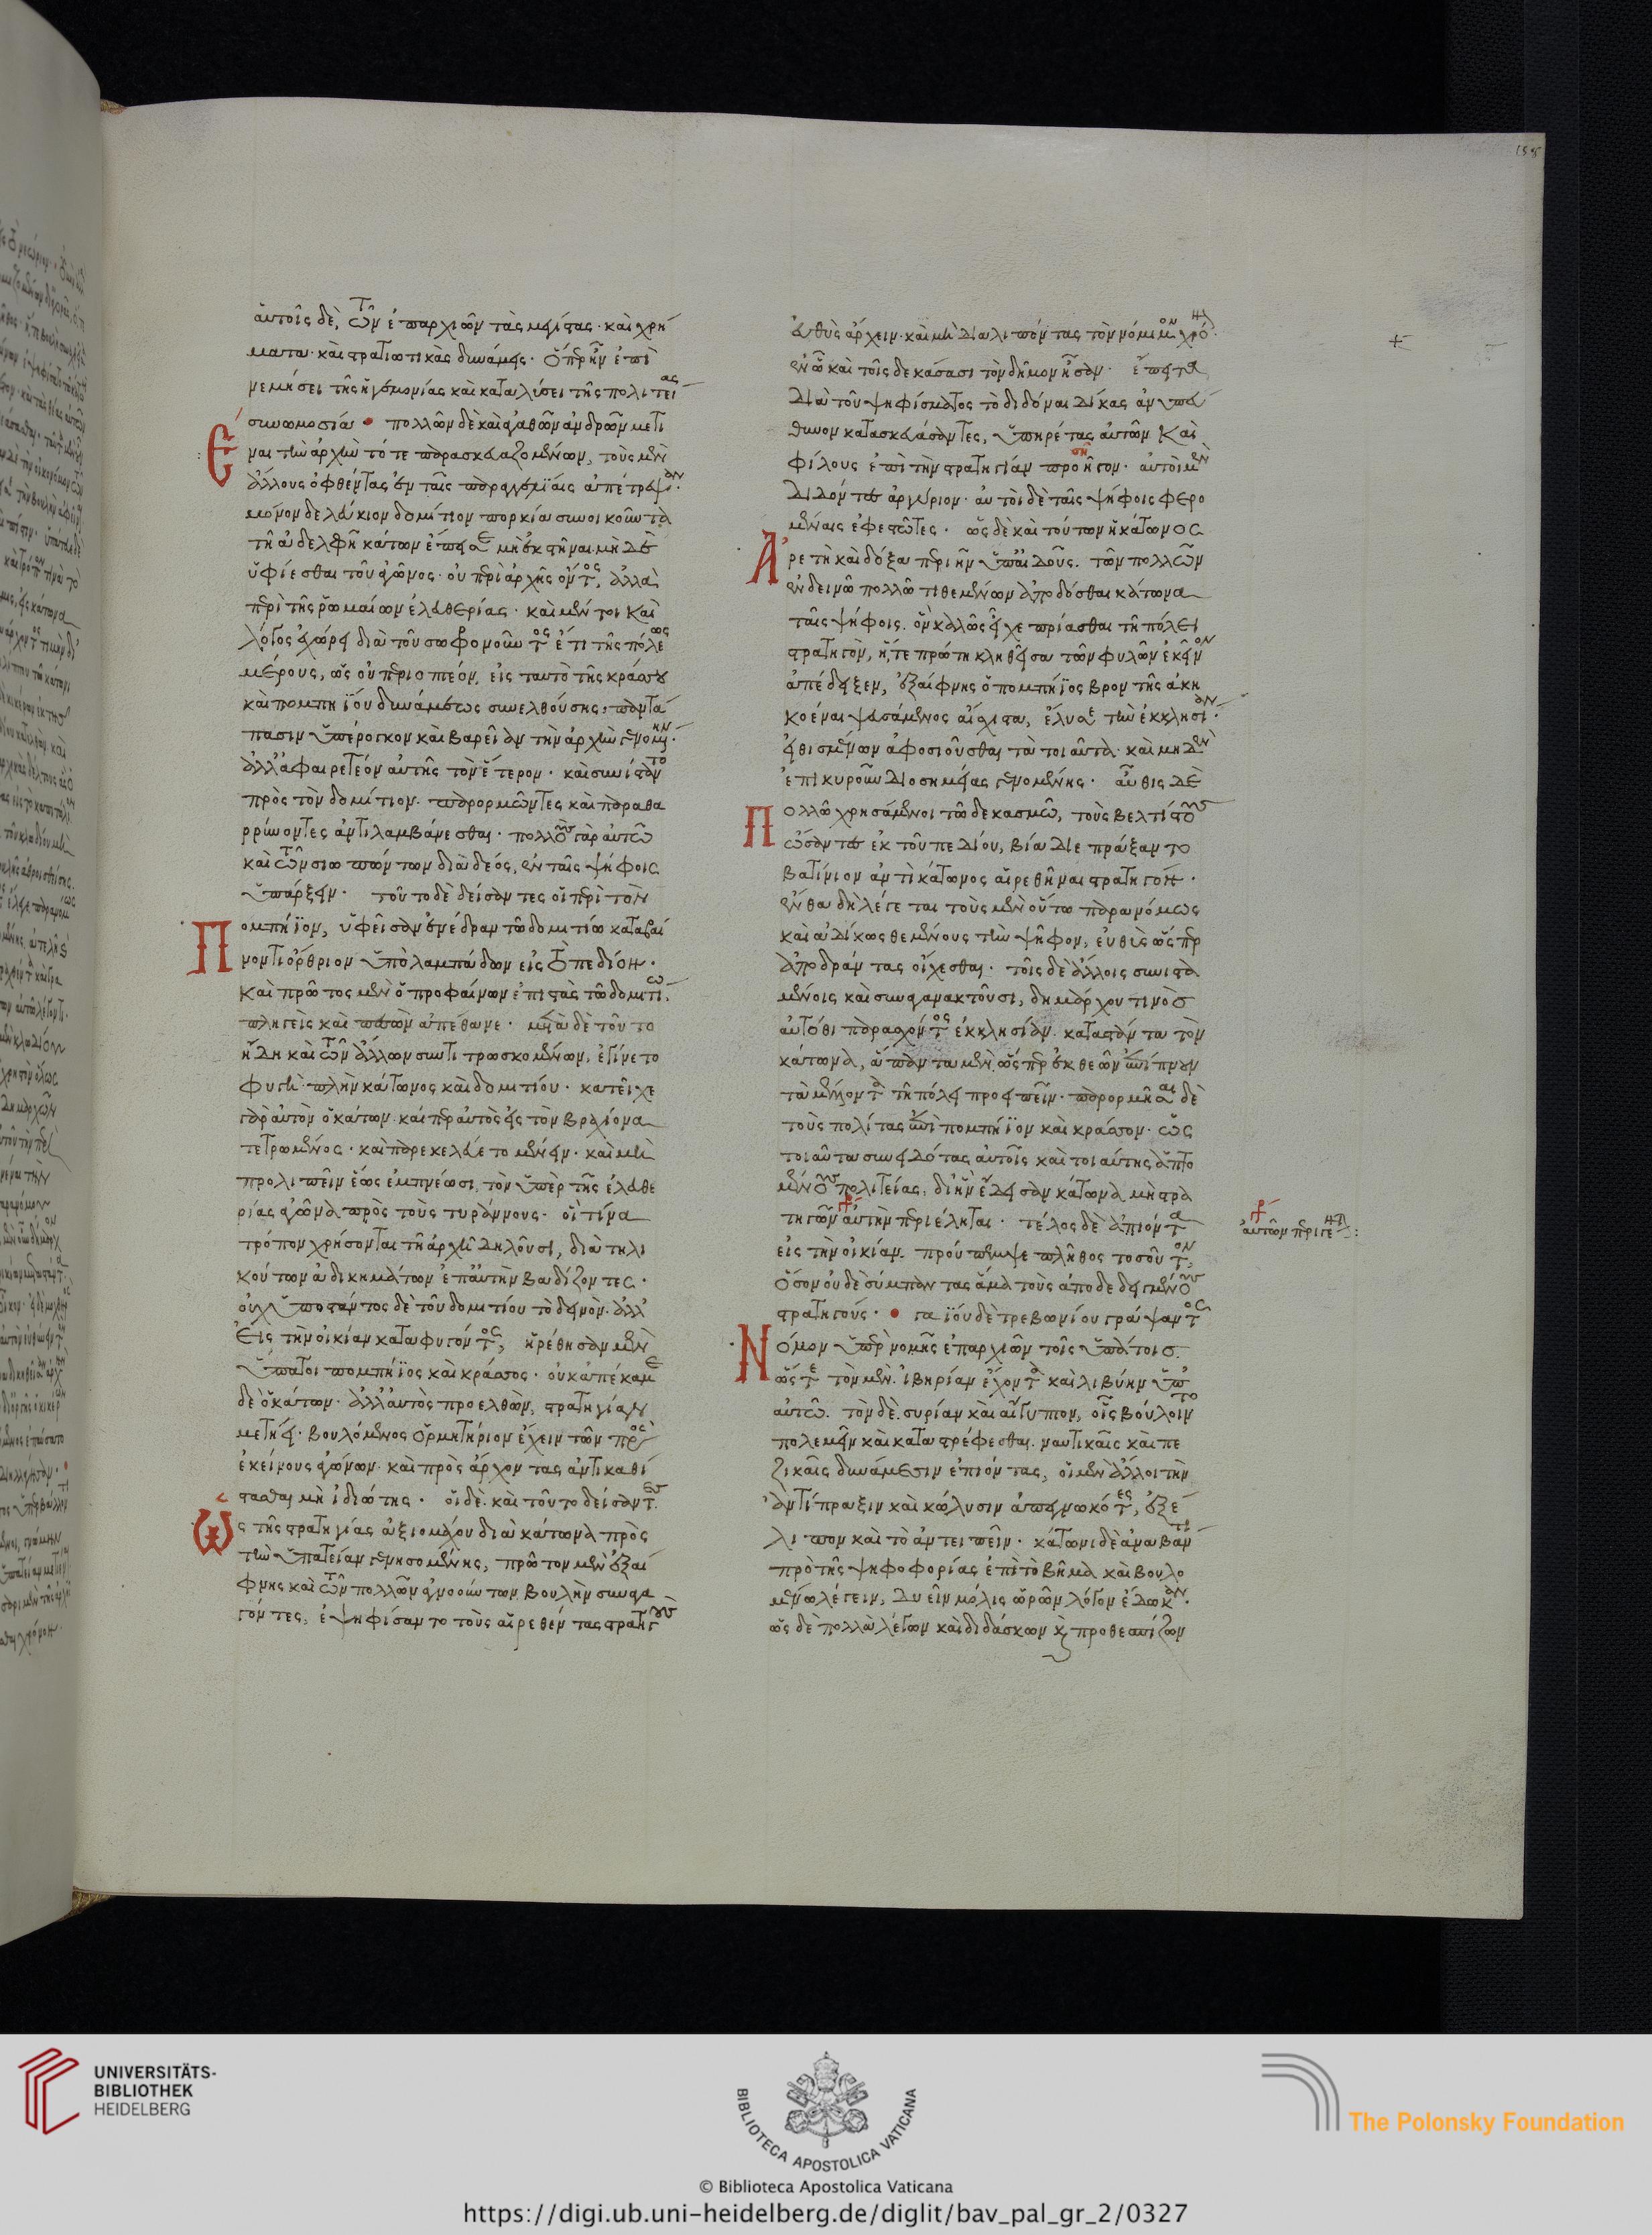 αὑτοῖς δὲ, τῶν ἐπαρχιῶν τὰς μεγίστας· καὶ χρή
ματα· καὶ στρατιωτικὰς δυνάμεις· ὅπερ ἦν ἐπὶ
νεμήσει τῆς ἡγεμονίας καὶ καταλύσει τῆς πολιτείας
συνωμοσία· πολλῶν δὲ καὶ ἀγαθῶν ἀνδρῶν μετι
Έναι τὴν ἀρχὴν τότε παρασκευαζομένων, τοὺς μὲν
ἄλλους ὀφθέντας ἐν ταῖς παραγγελίαις ἀπέτρεψαν·
μόνον δὲ λεύκιον δομίτιον πορκία συνοικοῦντα
τῆ ἀδελφῆ κάτων ἔπεισε μὴ ἐκστῆναι· μὴ δὲ
ὑφίεσθαι τοῦ ἀγῶνος· οὐ περὶ ἀρχῆς ὄντος, ἀλλὰ
περὶ τῆς ῥωμαίων ἐλευθερίας· καὶ μέντοι καὶ
λόγος ἐχώρει διὰ τοῦ σωφρονοῦντος ἔτι τῆς πόλεως
μέρους, ὡς οὐ περιοπτέον, εἰς ταυτὸ τῆς κράσσου
καὶ πομπηΐου δυνάμεως συνελθούσης, παντά
πασιν ὑπέρογκον καὶ βαρεῖαν τὴν ἀρχὴν γενομένην·
ἀλλ' ἀφαιρετέον αὐτῆς τὸν ἕτερον· καὶ συνίσταντο
πρὸς τὸν δομίτιον· παρορμῶντες καὶ παραθα
ρρύνοντες ἀντιλαμβάνεσθαι· πολλοὺς γὰρ αὐτῶ
καὶ τῶν σιωπώντων διὰ δέος, ἐν ταῖς ψήφοις
ὑπάρξειν· τοῦτο δὲ δείσαντες οἱ περὶ τὸν
Πομπήϊον, ὑφεῖσαν ἐνέδραν τῶ δομιτίω καταβαί
νοντι ὄρθριον ὑπὸ λαμπάδων εἰς τὸ πεδίον·
καὶ πρῶτος μὲν ὁ προφαίνων ἐπιστὰς τῶ δομιτίω,
πληγεὶς καὶ πεσὼν ἀπέθανε· μετὰ δὲ τοῦτο
ἤδη καὶ τῶν ἄλλων συντιτρωσκομένων, ἐγίνετο
φυγὴ· πλὴν κάτωνος καὶ δομιτίου· κατεῖχε
γὰρ αὐτὸν ὁ κάτων· καίπερ αὐτὸς εἰς τὸν βραχίονα
τετρωμένος· καὶ παρεκελεύετο μένειν· καὶ μὴ
προλιπεῖν ἕως ἐμπνέωσι, τὸν ὑπὲρ τῆς ἐλευθε
ρίας ἀγῶνα πρὸς τοὺς τυράννους· οἳ τίνα
τρόπον χρήσονται τῆ ἀρχῆ δηλοῦσι, διὰ τηλι
κούτων ἀδικημάτων ἐπ' αὐτὴν βαδίζοντες·
οὐχ ὑποστάντος δὲ τοῦ δομιτίου τὸ δεινὸν· ἀλλ'
εἰς τὴν οἰκίαν καταφυγόντος, ἡρέθησαν μὲν
ὕπατοι πομπήϊος καὶ κράσσος· οὐκ ἀπέκαμε
δὲ ὁ κάτων· ἀλλ' αὐτὸς προελθὼν, στρατηγίαν
μετήει· βουλόμενος ὁρμητήριον ἔχειν τῶν πρὸς
ἐκείνους ἀγώνων· καὶ πρὸς ἄρχοντας ἀντικαθί
στασθαι μὴ ἰδιώτης· οἱ δὲ· καὶ τοῦτο δείσαντες·
Ὡς τῆς στρατηγίας ἀξιομάχου διὰ κάτωνα πρὸς
τὴν ὑπατείαν γενησομένης, πρῶτον μὲν ἐξαί
φνης καὶ τῶν πολλῶν ἀγνοούντων, βουλὴν συναγα
γόντες, ἐψηφίσαντο τοὺς αἱρεθέντας στρατηγοὺς
εὐθὺς ἄρχειν· καὶ μὴ διαλιπόντας τὸν νόμιμον χρόνον·
ἐν ὧ καὶ τοῖς δεκάσασι τὸν δῆμον ἦσαν· ἔπειτα
διὰ τοῦ ψηφίσματος τὸ διδόναι δίκας ἀνυπεύ
θυνον κατασκευάσαντες, ὑπηρέτας αὐτῶν καὶ
φίλους ἐπὶ τὴν στρατηγίαν προῆγον· αὐτοὶ μὲν
διδόντες ἀργύριον· αὐτοὶ δὲ ταῖς ψήφοις φερο
μέναις ἐφεστῶτες· ὡς δὲ καὶ τούτων ἡ κάτωνος
Ἀρετὴ καὶ δόξα περιῆν ὑπ' αἰδοῦς· τῶν πολλῶν
ἐν δεινῶ πολλῶ τιθεμένων ἀποδόσθαι κάτωνα
ταῖς ψήφοις· ὃν καλῶς εἶχε πρίασθαι τῆ πόλει
στρατηγὸν, ἥ, τε πρώτη κληθεῖσα τῶν φυλῶν ἐκεῖνον
ἀπέδειξεν, ἐξαίφνης ὁ πομπήϊος βροντῆς ἀκη
κοέναι ψευσάμενος αἴσχιστα, ἔλυσε τὴν ἐκκλησίαν·
εἰθισμένων ἀφοσιοῦσθαι τὰ τοιαῦτα· καὶ μηδὲν
ἐπικυροῦν διοσημείας γενομένης· αὖθις δὲ
Πολλῶ χρησάμενοι τῶ δεκασμῶ, τοὺς βελτίστους
ὤσαντες ἐκ τοῦ πεδίου, βία διεπράξαντο
βατίνιον ἀντὶ κάτωνος αἱρεθῆναι στρατηγὸν·
ἔνθα δὴ λέγεται τοὺς μὲν οὕτω παρανόμως
καὶ ἀδίκως θεμένους τὴν ψῆφον, εὐθὺς ὥσπερ
ἀποδράντας οἴχεσθαι· τοῖς δὲ ἄλλοις συνιστα
μένοις καὶ συναγανακτοῦσι, δημάρχου τινὸς
αὐτόθι παρασχόντος ἐκκλησίαν· καταστάντα τὸν
κάτωνα, ἅπαντα μὲν ὥσπερ ἐκ θεῶν ἐπίπνουν
τὰ μέλλοντα τῆ πόλει προειπεῖν· παρορμῆσαι δὲ
τοὺς πολίτας ἐπὶ πομπήϊον καὶ κράσσον· ὡς
τοιαῦτα συνειδότας αὐτοῖς καὶ τοιαύτης ἁπτο
μένους πολιτείας, δι' ἣν ἔδεισαν κάτωνα μὴ στρα
τηγῶν αὐτὴν περιέληται· τέλος δὲ ἀπιόντα
εἰς τὴν οἰκίαν· προύπεμψε πλῆθος τοσοῦτον,
ὅσον οὐδὲ σύμπαντας ἅμα τοὺς ἀποδεδειγμένους
στρατηγούς· γαΐου δὲ τρεβωνίου γράψαντος
Νόμον ὑπὲρ νομῆς ἐπαρχιῶν τοῖς ὑπάτοις·
ὥστε τὸν μὲν· ἰβηρίαν ἔχοντα καὶ λιβύην ὑπ'
αὐτῶ· τὸν δὲ· συρίαν καὶ αἴγυπτον, οἷς βούλοιντο
πολεμεῖν καὶ καταστρέφεσθαι· ναυτικαῖς καὶ πε
ζικαῖς δυνάμεσιν ἐπιόντας, οἱ μὲν ἄλλοι τὴν
ἀντίπραξιν καὶ κώλυσιν ἀπεγνωκότες, ἐξέ
λιπον καὶ τὸ ἀντειπεῖν· κάτωνι δὲ ἀναβάντι
πρὸ τῆς ψηφοφορίας ἐπὶ τὸ βῆμα καὶ βουλο
μένω λέγειν, δυεῖν μόλις ὡρῶν λόγον ἔδωκαν·
ὡς δὲ πολλὰ λέγων καὶ διδάσκων καὶ προθεσπίζων
γρ αὐτῶν περιγένηται:
UNIVERSITÄTS-
BIBLIOTHEK
HEIDELBERG
BIBLIOTECA APOSTOLICA VATICANA
© Biblioteca Apostolica Vaticana
The Polonsky Foundation
https://digi.ub.uni-heidelberg.de/diglit/bav_pal_gr_2/0327